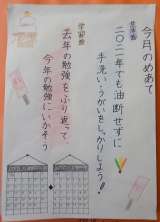 今月のめあて
生活面
二〇二一年でも油断せずに
手洗い・うがいをしっかりしよう!!
学習面
去年の勉強をふり返って
今年の勉強にいかそう